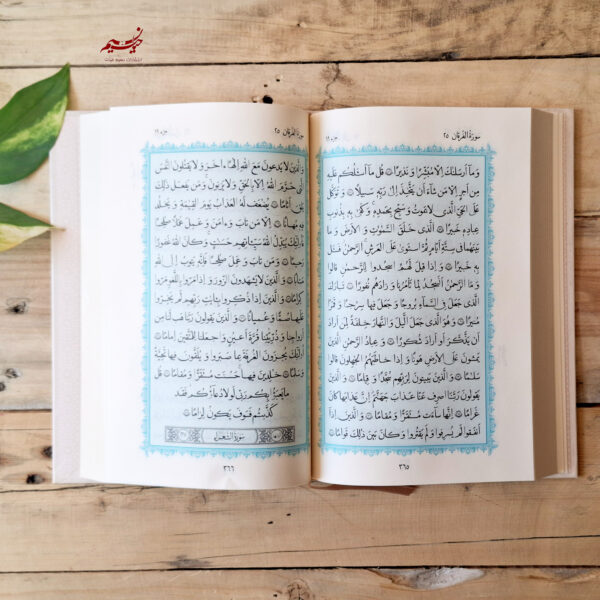 نسیم حیات
انتشارات نسیم حیات
سورة الفرقان ٢٥ جزء ١٩
وَمَا اَرْسَلْنَاكَ اِلَّا مُبَشِّرًا وَ نَذِيرًا ۝ قُلْ مَا اَسْئَلُكُمْ عَلَيْهِ
مِنْ اَجْرٍ اِلَّا مَنْ شَاءَ اَنْ يَتَّخِذَ اِلٰى رَبِّهِ سَبِيلًا ۝ وَ تَوَكَّلْ
عَلَى الْحَيِّ الَّذِي لَا يَمُوتُ وَ سَبِّحْ بِحَمْدِهِ وَ كَفٰى بِهِ بِذُنُوبِ
عِبَادِهِ خَبِيرًا ۝ الَّذِي خَلَقَ السَّمٰوَاتِ وَ الْاَرْضَ وَ مَا
بَيْنَهُمَا فِي سِتَّةِ اَيَّامٍ ثُمَّ اسْتَوٰى عَلَى الْعَرْشِ الرَّحْمٰنُ فَسْئَلْ
بِهِ خَبِيرًا ۝ وَ اِذَا قِيلَ لَهُمُ اسْجُدُوا لِلرَّحْمٰنِ قَالُوا
وَ مَا الرَّحْمٰنُ اَنَسْجُدُ لِمَا تَأْمُرُنَا وَ زَادَهُمْ نُفُورًا ۝ تَبَارَكَ
الَّذِي جَعَلَ فِي السَّمَاءِ بُرُوجًا وَ جَعَلَ فِيهَا سِرَاجًا وَ قَمَرًا
مُنِيرًا ۝ وَ هُوَ الَّذِي جَعَلَ الَّيْلَ وَ النَّهَارَ خِلْفَةً لِمَنْ اَرَادَ
اَنْ يَذَّكَّرَ اَوْ اَرَادَ شُكُورًا ۝ وَ عِبَادُ الرَّحْمٰنِ الَّذِينَ
يَمْشُونَ عَلَى الْاَرْضِ هَوْنًا وَ اِذَا خَاطَبَهُمُ الْجَاهِلُونَ قَالُوا
سَلَامًا ۝ وَ الَّذِينَ يَبِيتُونَ لِرَبِّهِمْ سُجَّدًا وَ قِيَامًا ۝ وَ الَّذِينَ
يَقُولُونَ رَبَّنَا اصْرِفْ عَنَّا عَذَابَ جَهَنَّمَ اِنَّ عَذَابَهَا كَانَ
غَرَامًا ۝ اِنَّهَا سَاءَتْ مُسْتَقَرًّا وَ مُقَامًا ۝ وَ الَّذِينَ اِذَا
اَنْفَقُوا لَمْ يُسْرِفُوا وَ لَمْ يَقْتُرُوا وَ كَانَ بَيْنَ ذٰلِكَ قَوَامًا ۝
٣٦٥
سورة الفرقان ٢٥ جزء ١٩
وَ الَّذِينَ لَا يَدْعُونَ مَعَ اللّٰهِ اِلٰهًا اٰخَرَ وَ لَا يَقْتُلُونَ النَّفْسَ
الَّتِي حَرَّمَ اللّٰهُ اِلَّا بِالْحَقِّ وَ لَا يَزْنُونَ وَ مَنْ يَفْعَلْ ذٰلِكَ
يَلْقَ اَثَامًا ۝ يُضَاعَفْ لَهُ الْعَذَابُ يَوْمَ الْقِيٰمَةِ وَ يَخْلُدْ
فِيهِ مُهَانًا ۝ اِلَّا مَنْ تَابَ وَ اٰمَنَ وَ عَمِلَ عَمَلًا صَالِحًا
فَاُولٰئِكَ يُبَدِّلُ اللّٰهُ سَيِّئَاتِهِمْ حَسَنَاتٍ وَ كَانَ اللّٰهُ غَفُورًا
رَحِيمًا ۝ وَ مَنْ تَابَ وَ عَمِلَ صَالِحًا فَاِنَّهُ يَتُوبُ اِلَى اللّٰهِ
مَتَابًا ۝ وَ الَّذِينَ لَا يَشْهَدُونَ الزُّورَ وَ اِذَا مَرُّوا بِاللَّغْوِ مَرُّوا
كِرَامًا ۝ وَ الَّذِينَ اِذَا ذُكِّرُوا بِاٰيَاتِ رَبِّهِمْ لَمْ يَخِرُّوا
عَلَيْهَا صُمًّا وَ عُمْيَانًا ۝ وَ الَّذِينَ يَقُولُونَ رَبَّنَا هَبْ لَنَا مِنْ
اَزْوَاجِنَا وَ ذُرِّيَّاتِنَا قُرَّةَ اَعْيُنٍ وَ اجْعَلْنَا لِلْمُتَّقِينَ اِمَامًا ۝
اُولٰئِكَ يُجْزَوْنَ الْغُرْفَةَ بِمَا صَبَرُوا وَ يُلَقَّوْنَ فِيهَا تَحِيَّةً
وَ سَلَامًا ۝ خَالِدِينَ فِيهَا حَسُنَتْ مُسْتَقَرًّا وَ مُقَامًا ۝ قُلْ
مَا يَعْبَؤُا بِكُمْ رَبِّي لَوْلَا دُعَاؤُكُمْ فَقَدْ
كَذَّبْتُمْ فَسَوْفَ يَكُونُ لِزَامًا ۝
سورة الشعراء
٣٦٦